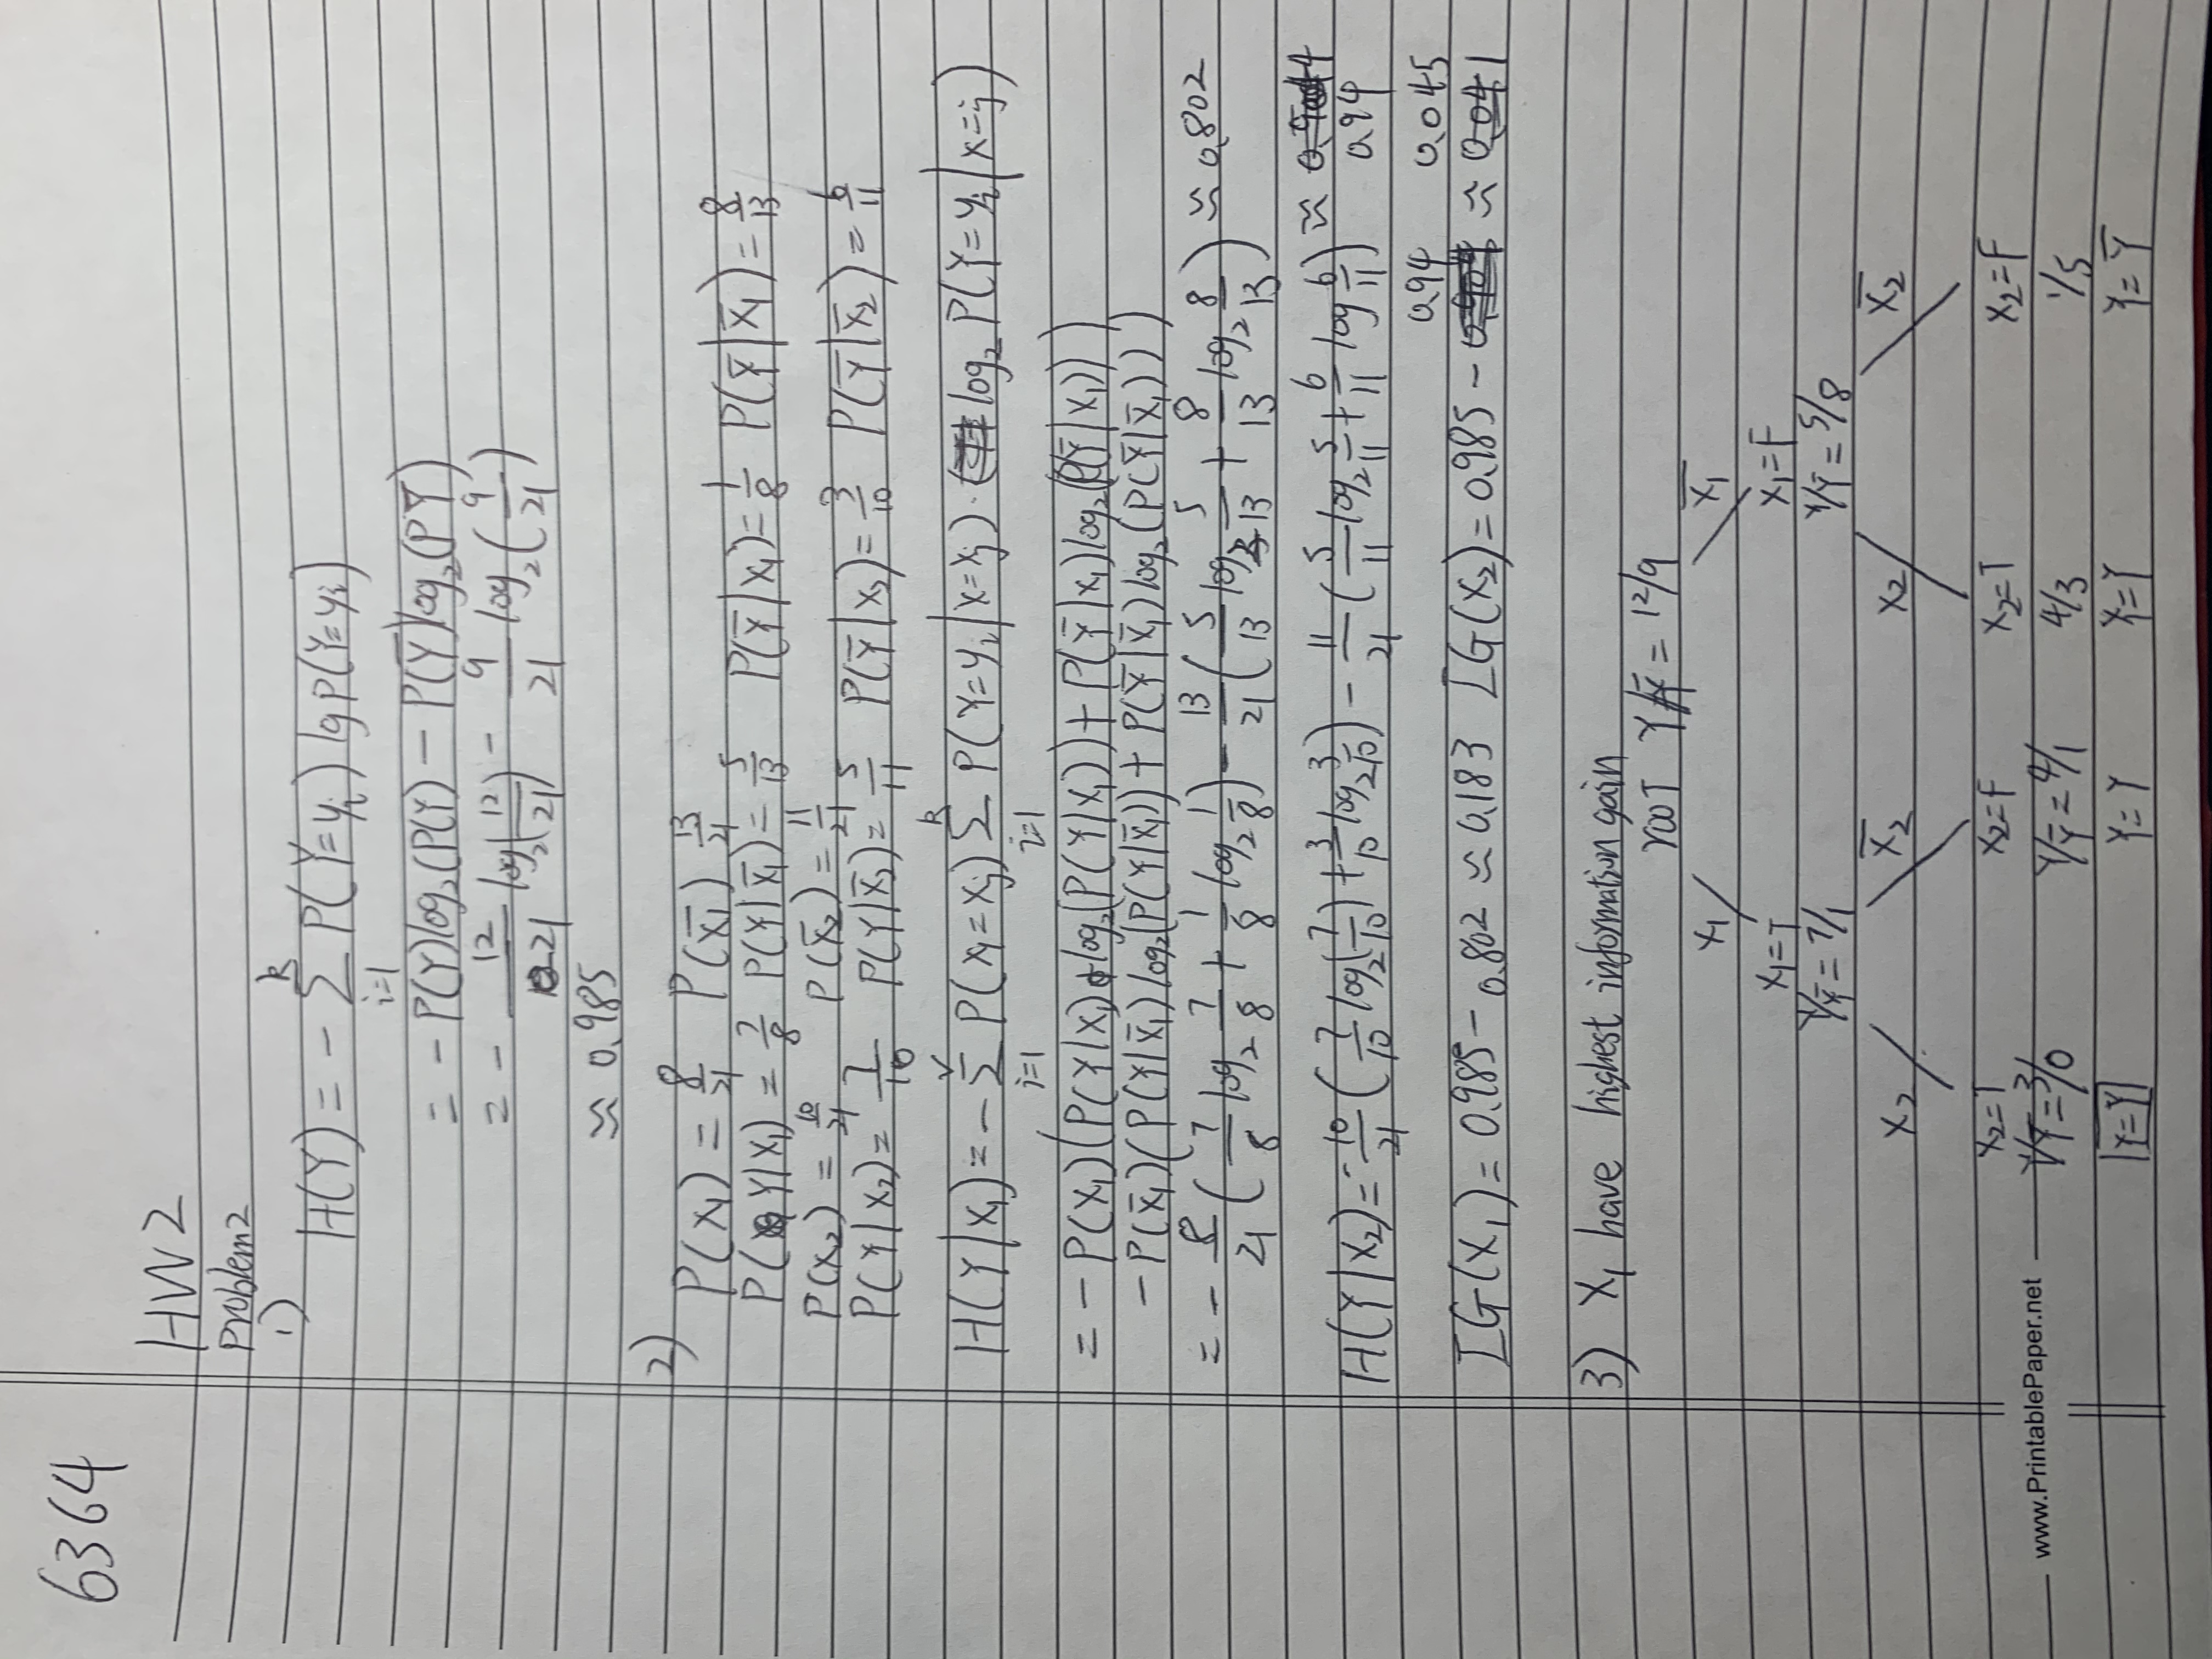 6364
HW2
Problem2
1)
H(Y) = - Σ_{i=1}^{k} P(Y=y_i) lg P(Y=y_i)
= - P(Y)log₂(P(Y) - P(Y̅)log₂(PY̅)
= - 12/21 log₂(12/21) - 9/21 log₂(9/21)
≈ 0.985
2)
P(X₁) = 8/21 P(X̅₁) 13/21
P(Y|X₁) = 7/8 P(Y|X̅₁) = 5/13 P(Y̅|X₁) = 1/8 P(Y̅|X̅₁) = 8/13
P(X₂) = 10/21 P(X̅₂) = 11/21
P(Y|X₂) = 7/10 P(Y|X̅₂) = 5/11 P(Y̅|X₂) = 3/10 P(Y̅|X̅₂) = 6/11
H(Y|X₁) = - Σ_{j=1}^{v} P(X₁=x_j) Σ_{i=1}^{k} P(Y=y_i|X=x_j) · log₂ P(Y=y_i|X=j)
= - P(X₁)(P(Y|X₁) log₂(P(Y|X₁)) + P(Y̅|X₁)log₂(P(Y̅|X₁)))
- P(X̅₁)(P(Y|X̅₁)log₂(P(Y|X̅₁)) + P(Y̅|X̅₁)log₂(P(Y̅|X̅₁)))
= - 8/21 (7/8 log₂ 7/8 + 1/8 log₂ 1/8) - 13/21 (5/13 log₂ 5/13 + 8/13 log₂ 8/13) ≈ 0.802
H(Y|X₂) = - 10/21 (7/10 log₂(7/10) + 3/10 log₂ 3/10) - 11/21 (5/11 log₂ 5/11 + 6/11 log 6/11) ≈ 0.94
IG(X₁) = 0.985 - 0.802 ≈ 0.183 IG(X₂) = 0.985 - 0.94 ≈ 0.045
3) X₁ have highest information gain
root Y/Y̅ = 12/9
X₁ X̅₁
X₁=T X₁=F
Y/Y̅ = 7/1 Y/Y̅ = 5/8
X₂ X̅₂ X₂ X̅₂
X₂=T X₂=F X₂=T X₂=F
Y/Y̅ = 3/0 Y/Y̅ = 4/1 4/3 1/5
Y=Y Y=Y Y=Y Y=Y̅
www.PrintablePaper.net